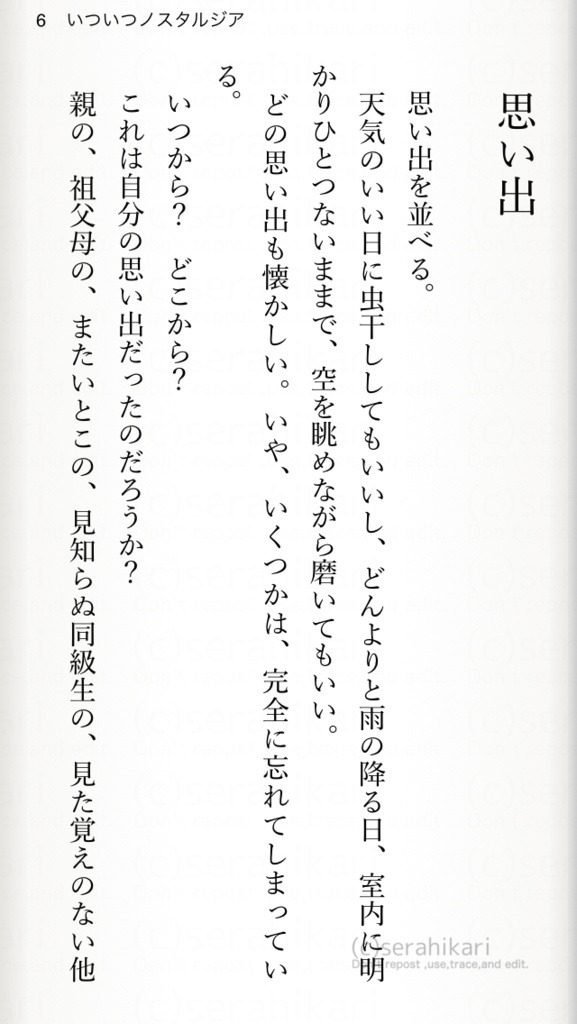 6 いついつノスタルジア
思い出
思い出を並べる。
天気のいい日に虫干ししてもいいし、どんよりと雨の降る日、室内に明
かりひとつないままで、空を眺めながら磨いてもいい。
どの思い出も懐かしい。いや、いくつかは、完全に忘れてしまってい
る。
いつから？　どこから？
これは自分の思い出だったのだろうか？
親の、祖父母の、またいとこの、見知らぬ同級生の、見た覚えのない他
(c)serahikari
Don't repost ,use,trace,and edit.